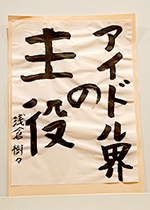 アイドル界
の
主役
浅倉樹々